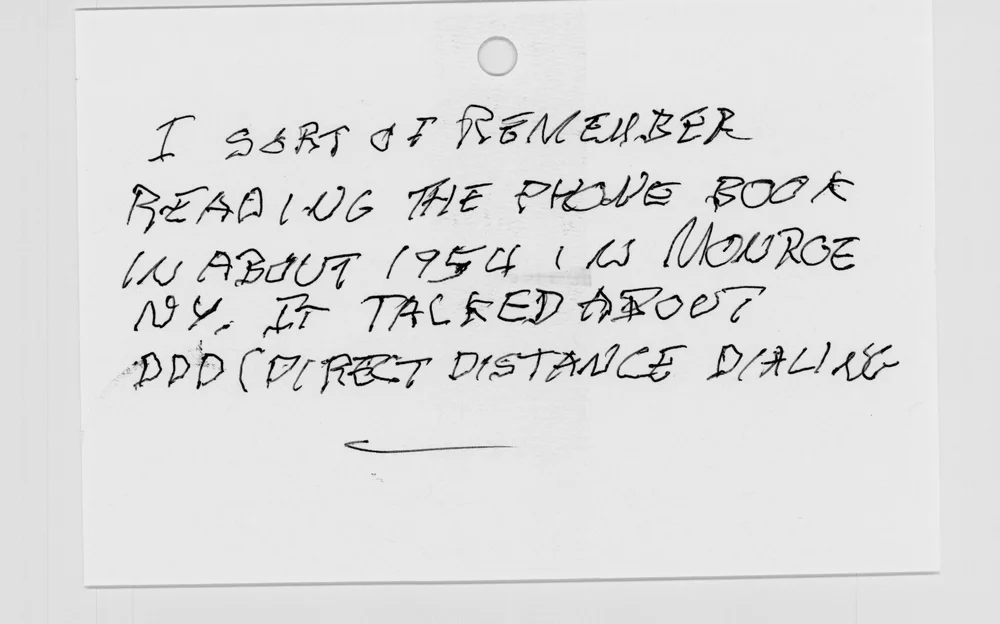 I SORT OF REMEMBER
READING THE PHONE BOOK
IN ABOUT 1954 IN MONROE
NY. IT TALKED ABOUT
DDD (DIRECT DISTANCE DIALING